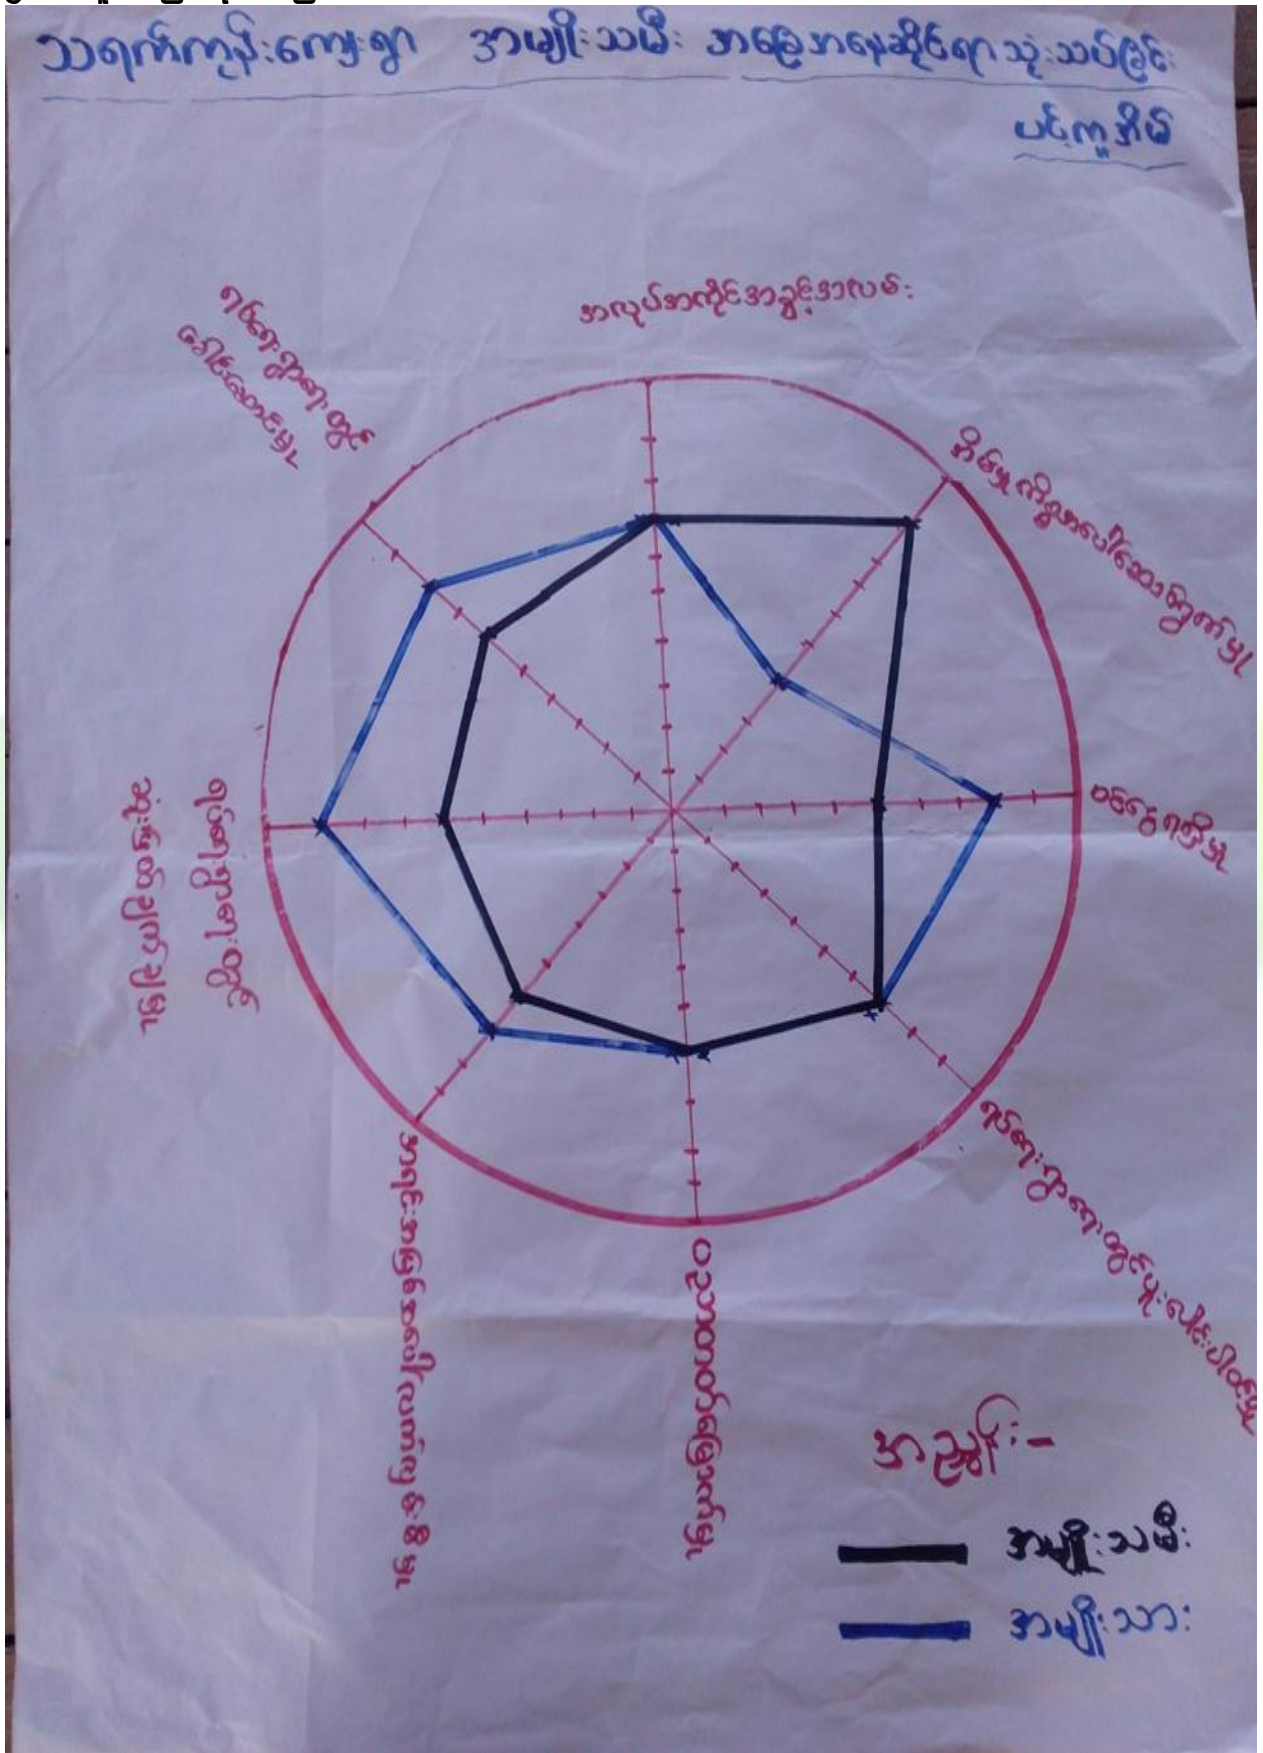 သရက်ကုန်းကျေးရွာ အမျိုးသမီး အခြေအနေဆိုင်ရာသုံးသပ်ခြင်း
ပင့်ကူအိမ်
အလုပ်အကိုင်အခွင့်အလမ်း
အိမ်မှုကိစ္စအပေါ်ဆောင်ရွက်မှု
ဝင်ငွေရရှိမှု
ရပ်ရေးရွာရေးတွင်ပူးပေါင်းပါဝင်မှု
ပညာတတ်မြောက်မှု
အရင်းအမြစ်အပေါ်လက်လှမ်းမှီမှု
ရပ်ရေးရွာရေးတွင်
ဆုံးဖြတ်ချက်ချမှု
ရပ်ရေးရွာရေးတွင်
ခေါင်းဆောင်မှု
အညွှန်း-
အမျိုးသမီး
အမျိုးသား